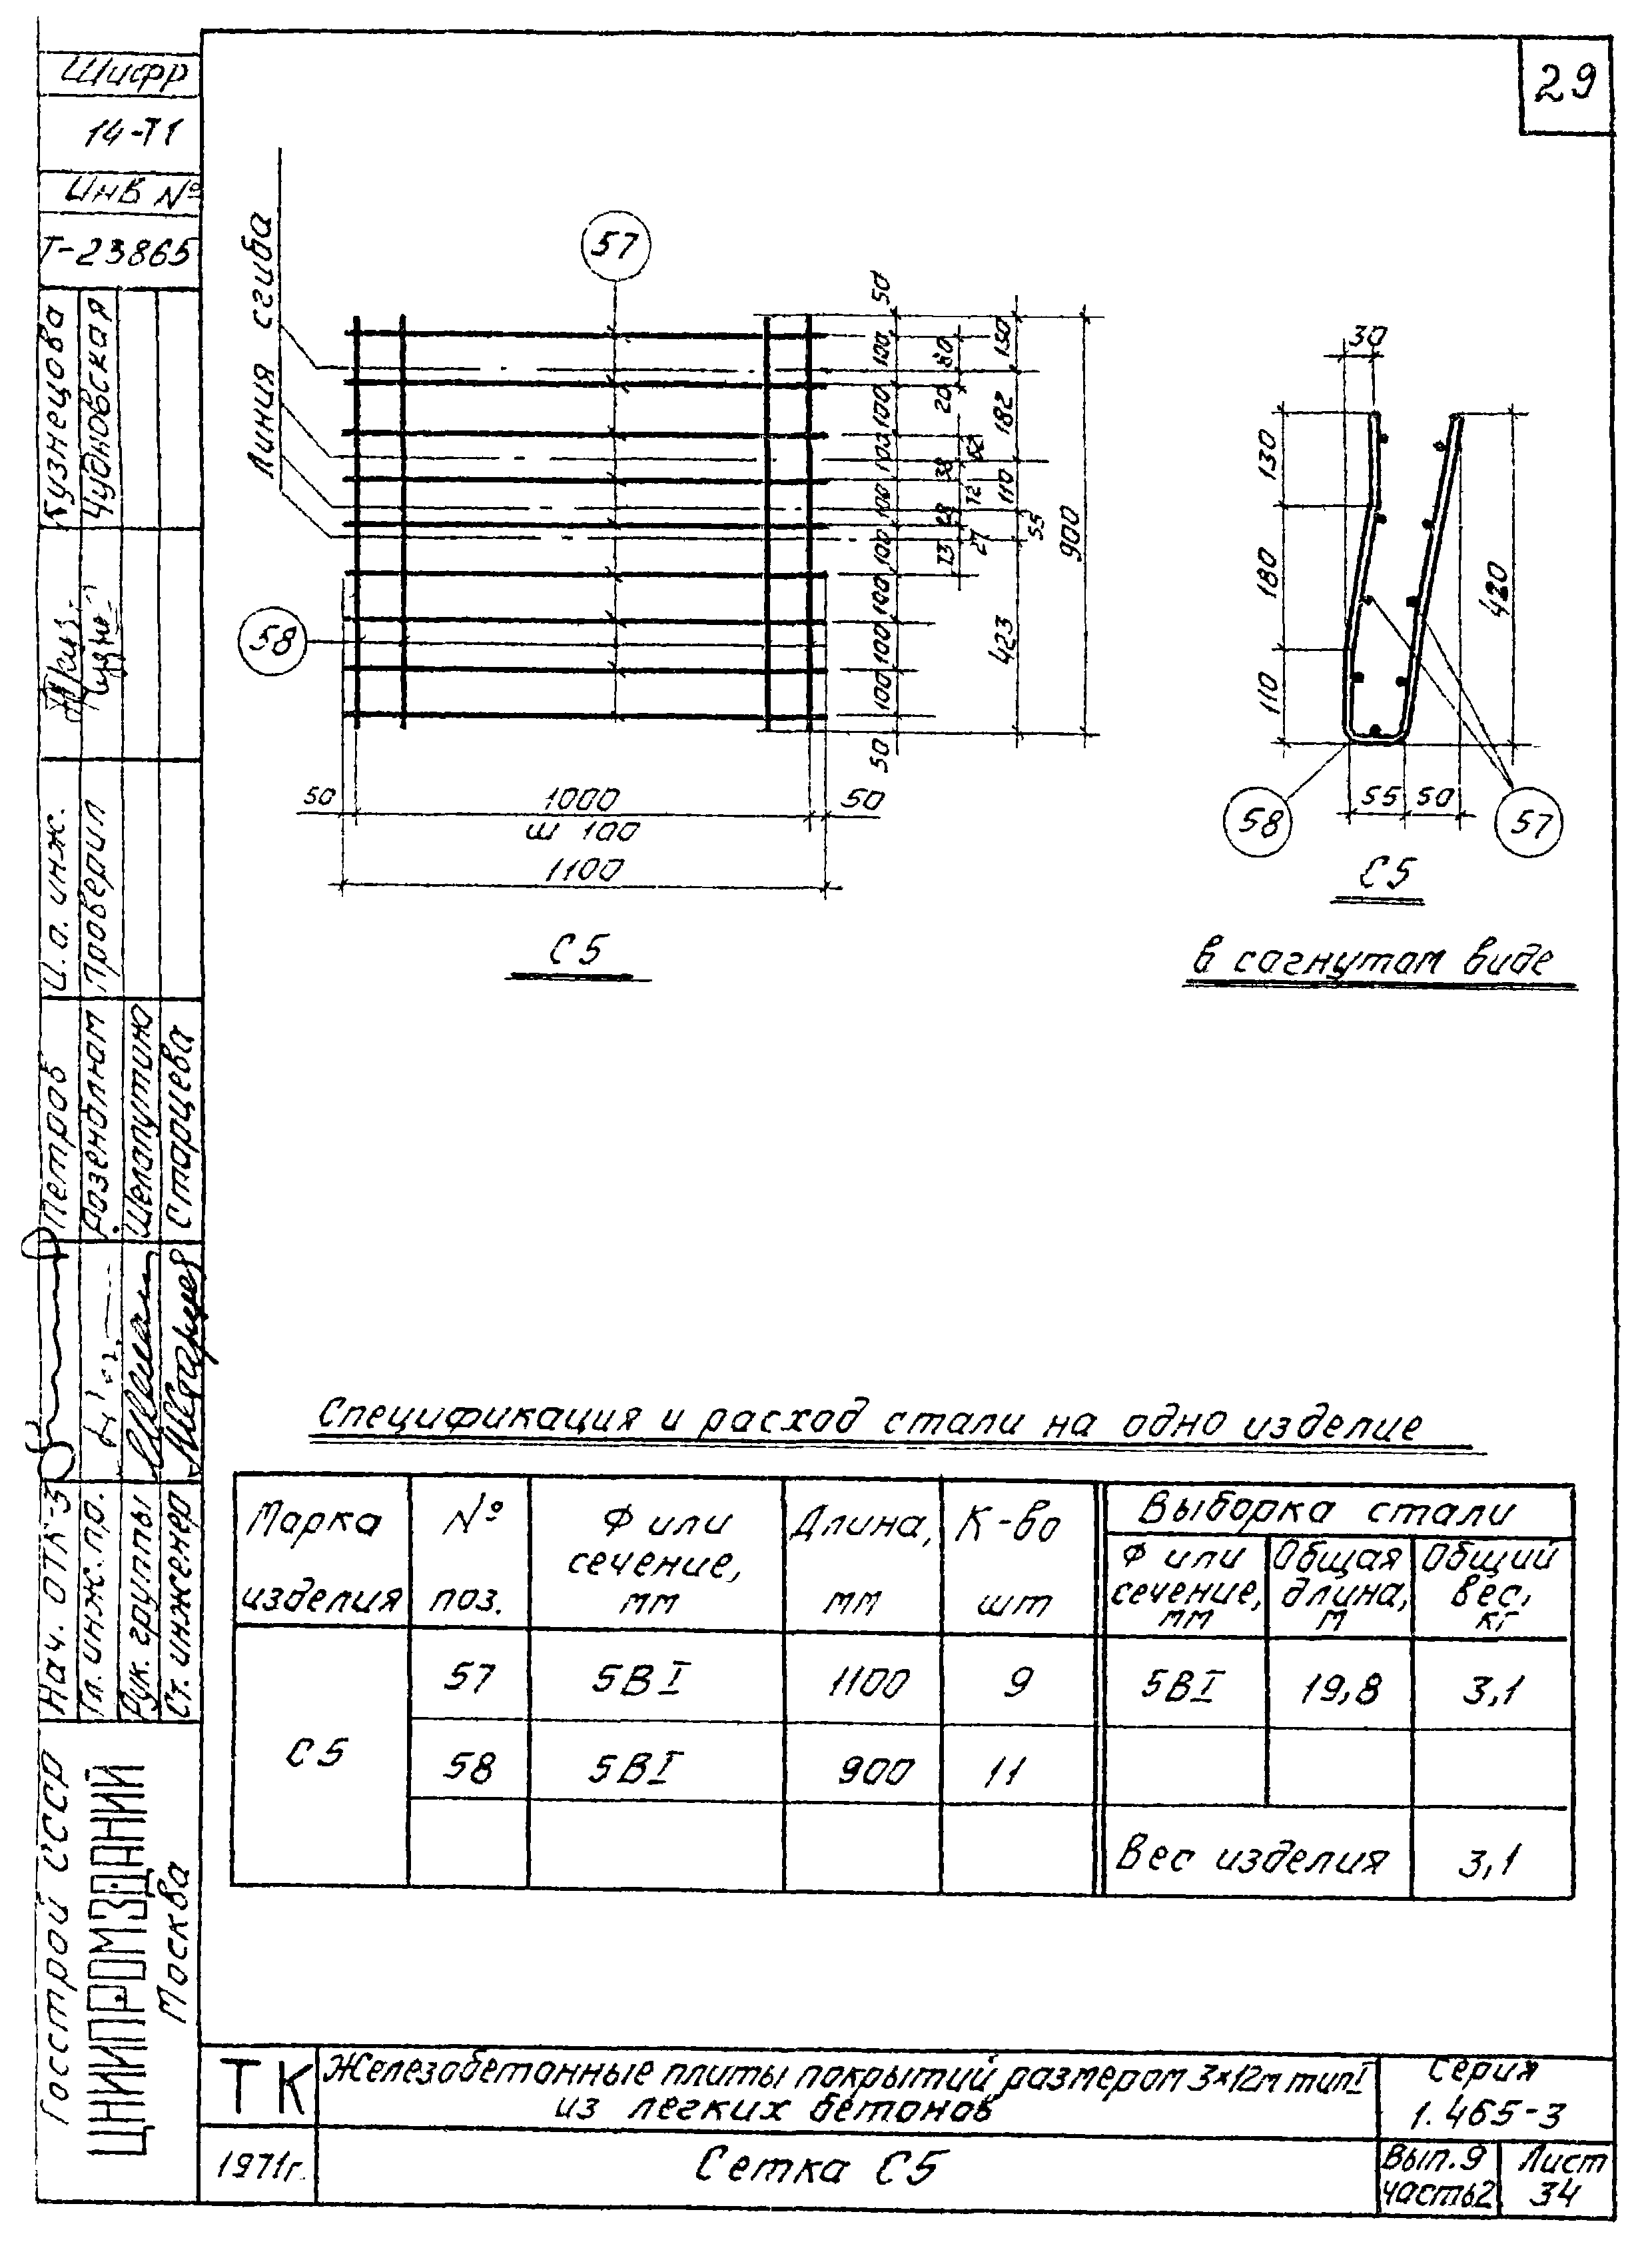 29
Шифр
14-Т1
Инв №
Т-23865
Кузнецова
Чудновская
И.о. инж.
Проверил
Петров
Розенблюм
Шелапутина
Старцева
Нач. ОТК-3
Гл. инж. пр.
Рук. группы
Ст. инженер
Госстрой СССР
ЦНИИПРОМЗДАНИЙ
Москва
Линия сгиба
57
58
50
100
100
100
100
100
100
100
100
50
80
20
62
38
72
28
27
73
150
182
110
55
423
900
50
1000
50
ш 100
1100
С5
30
130
180
110
420
55
50
58
57
С5
в согнутом виде
Спецификация и расход стали на одно изделие
Марка изделия
№ поз.
Ф или сечение, мм
Длина, мм
К-во шт
Выборка стали
Ф или сечение, мм
Общая длина, м
Общий вес, кг
С5
57 5ВI 1100 9 5ВI 19,8 3,1
58 5ВI 900 11
Вес изделия 3,1
ТК
Железобетонные плиты покрытий размером 3×12м тип I
из легких бетонов
Серия
1.465-3
1971г.
Сетка С5
Вып.9
часть2
Лист
34